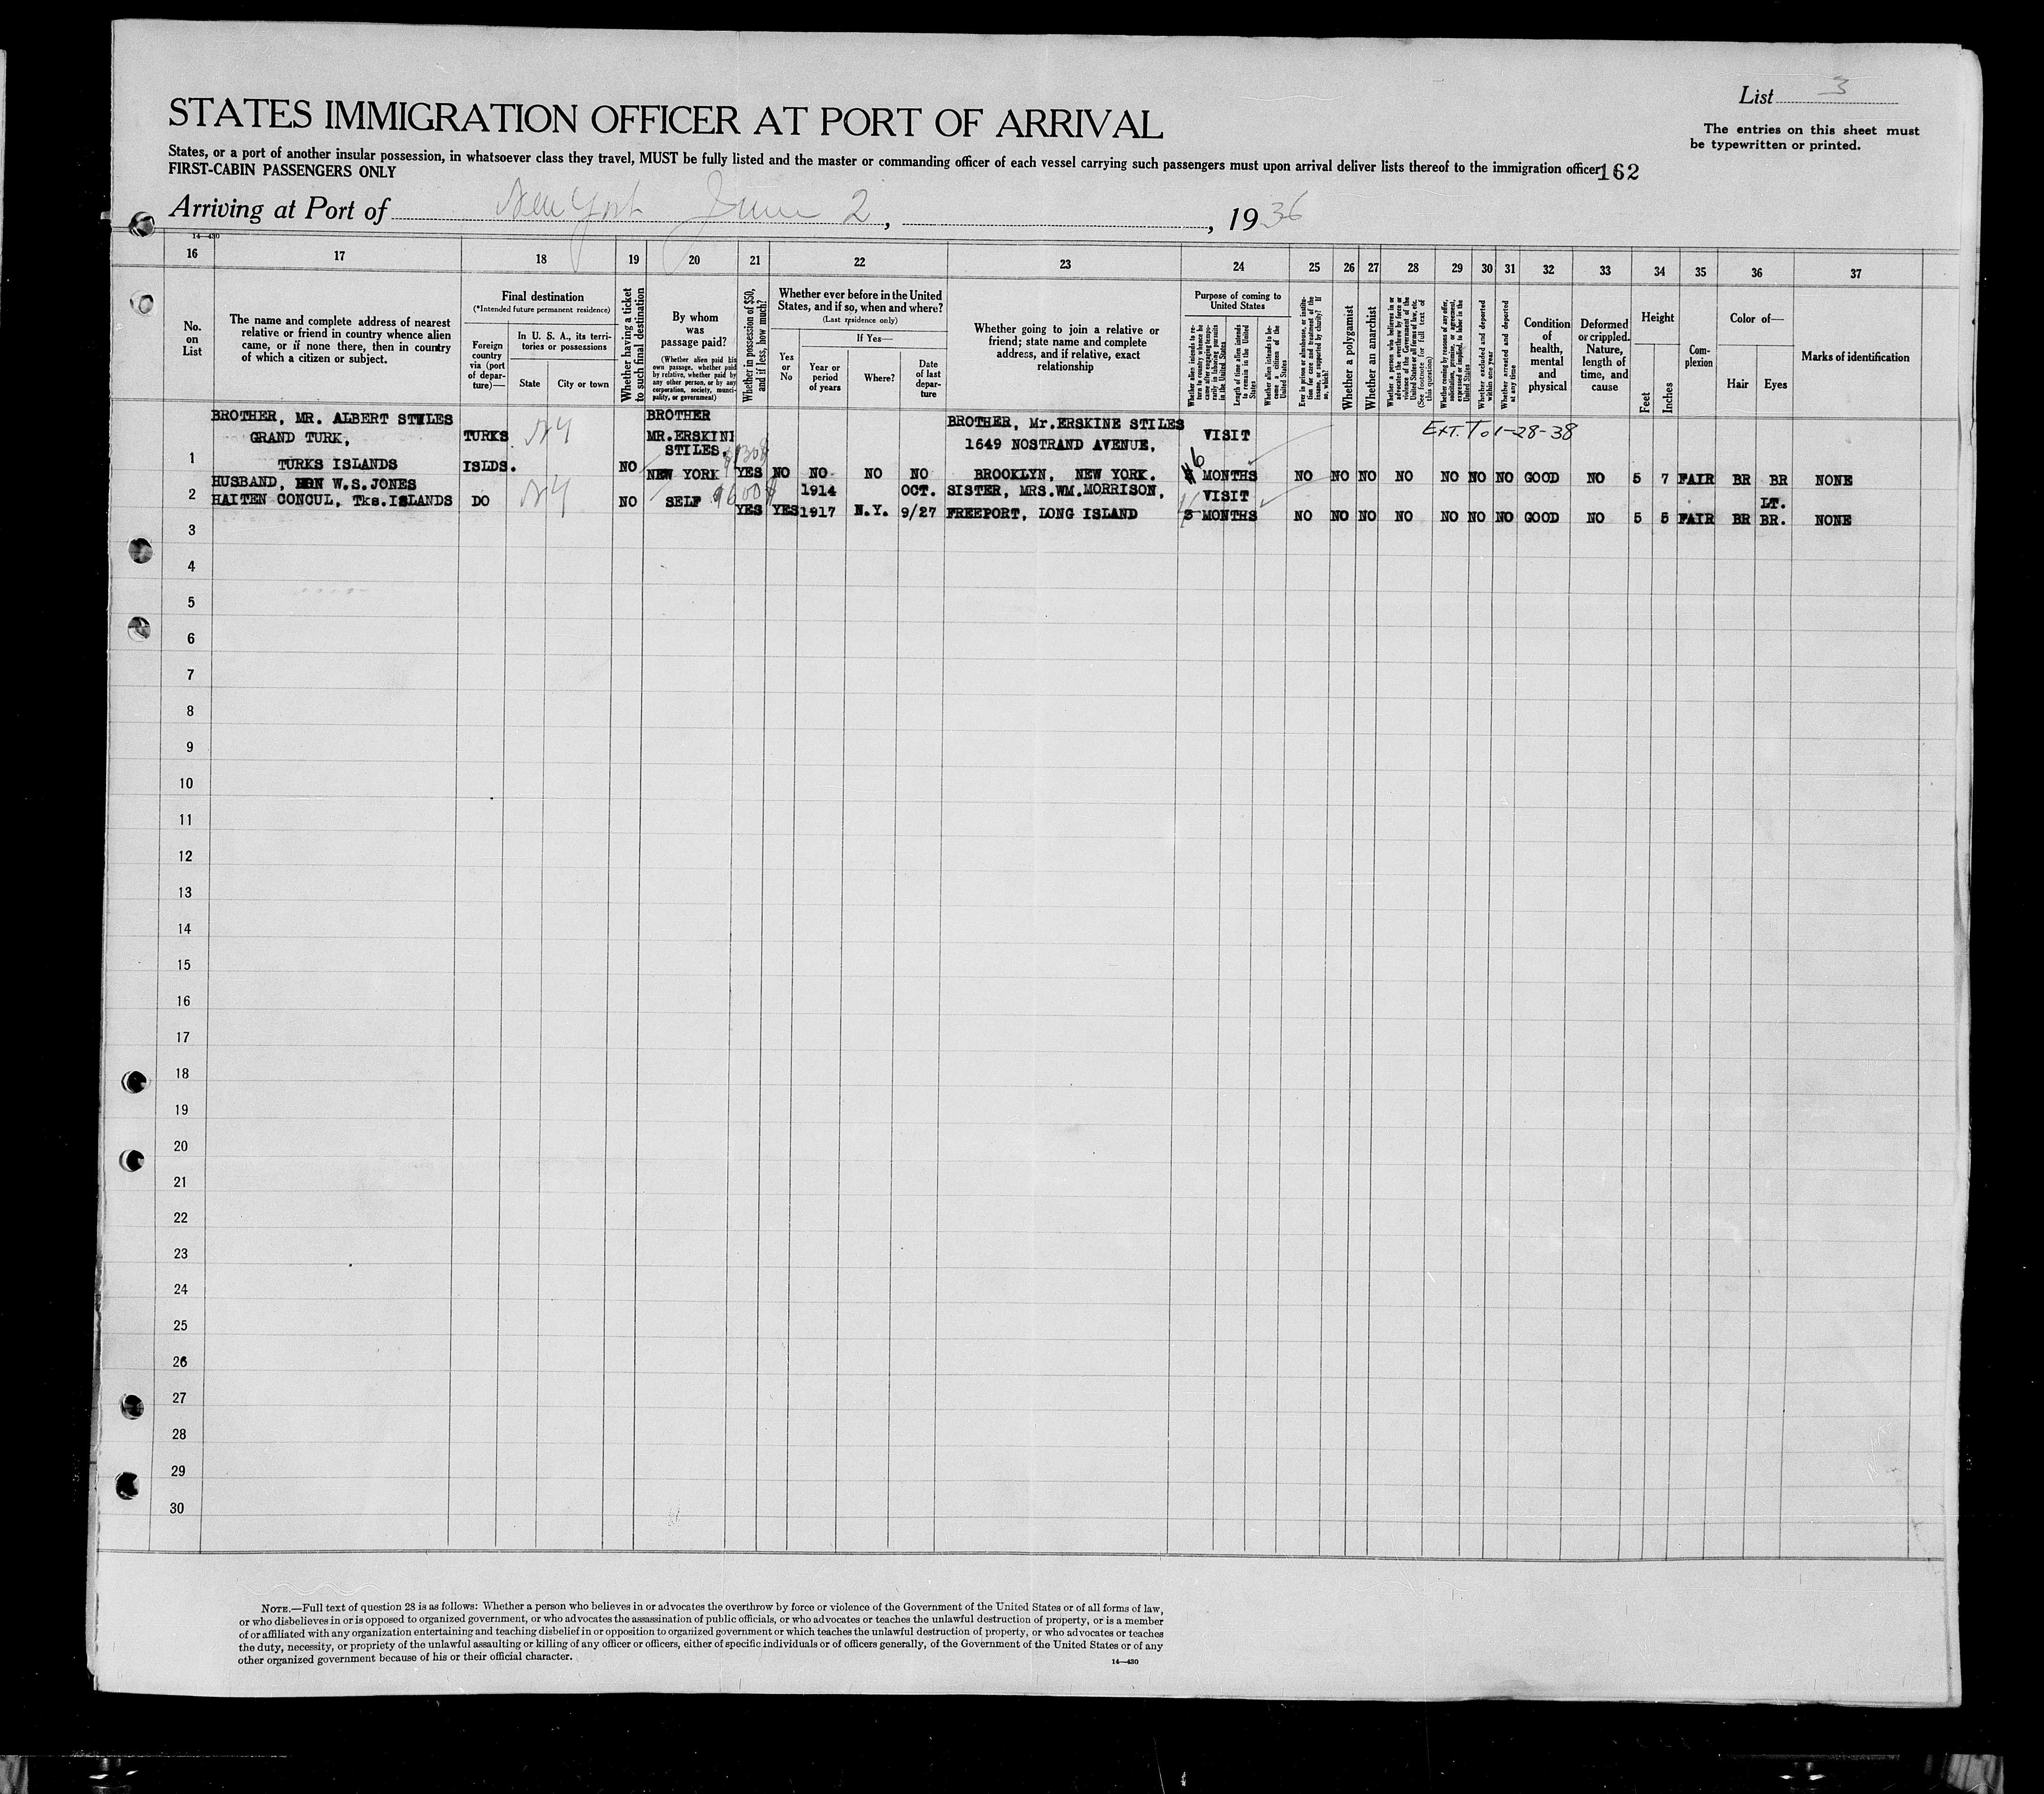 List 3
STATES IMMIGRATION OFFICER AT PORT OF ARRIVAL
The entries on this sheet must
be typewritten or printed.
States, or a port of another insular possession, in whatsoever class they travel, MUST be fully listed and the master or commanding officer of each vessel carrying such passengers must upon arrival deliver lists thereof to the immigration officer
162
FIRST-CABIN PASSENGERS ONLY
Arriving at Port of New York June 2, , 1936
14—430
16 17 18 19 20 21 22 23 24 25 26 27 28 29 30 31 32 33 34 35 36 37
No.
on
List
The name and complete address of nearest
relative or friend in country whence alien
came, or if none there, then in country
of which a citizen or subject.
Final destination
(*Intended future permanent residence)
Foreign
country
via (port
of depar-
ture)—
In U. S. A., its terri-
tories or possessions
State
City or town
Whether having a ticket
to such final destination
By whom
was
passage paid?
(Whether alien paid his
own passage, whether paid
by relative, whether paid by
any other person, or by any
corporation, society, munici-
pality, or government)
Whether in possession of $50,
and if less, how much?
Whether ever before in the United
States, and if so, when and where?
(Last residence only)
Yes
or
No
If Yes—
Year or
period
of years
Where?
Date
of last
depar-
ture
Whether going to join a relative or
friend; state name and complete
address, and if relative, exact
relationship
Purpose of coming to
United States
Whether alien intends to re-
turn to country whence he
came after engaging tempo-
rarily in laboring pursuits
in the United States
Length of time alien intends
to remain in the United
States
Whether alien intends to be-
come a citizen of the
United States
Ever in prison or almshouse, or institu-
tion for care and treatment of the
insane, or supported by charity? If
so, which?
Whether a polygamist
Whether an anarchist
Whether a person who believes in or
advocates the overthrow by force or
violence of the Government of the
United States or all forms of law, etc.
(See footnote for full text of
this question)
Whether coming by reasons of any offer,
solicitation, promise, or agreement,
expressed or implied, to labor in the
United States
Whether excluded and deported
within one year
Whether arrested and deported
at any time
Condition
of
health,
mental
and
physical
Deformed
or crippled.
Nature,
length of
time, and
cause
Height
Feet
Inches
Com-
plexion
Color of—
Hair
Eyes
Marks of identification
BROTHER, MR. ALBERT STILES BROTHER BROTHER, Mr.ERSKINE STILES
GRAND TURK, TURKS NY MR.ERSKINI 1649 NOSTRAND AVENUE, VISIT EXT. To 1-28-38
STILES,
1 TURKS ISLANDS ISLDS. NO NEW YORK YES NO NO NO NO BROOKLYN, NEW YORK. 6 MONTHS NO NO NO NO NO NO NO GOOD NO 5 7 FAIR BR BR NONE
HUSBAND, HON W.S.JONES 1914 OCT. SISTER, MRS.WM.MORRISON, VISIT LT.
2 HAITEN CONCUL, Tks.ISLANDS DO NY NO SELF YES YES 1917 N.Y. 9/27 FREEPORT, LONG ISLAND 3 MONTHS NO NO NO NO NO NO NO GOOD NO 5 5 FAIR BR BR. NONE
3
4
5
6
7
8
9
10
11
12
13
14
15
16
17
18
19
20
21
22
23
24
25
26
27
28
29
30
NOTE.—Full text of question 28 is as follows: Whether a person who believes in or advocates the overthrow by force or violence of the Government of the United States or of all forms of law,
or who disbelieves in or is opposed to organized government, or who advocates the assassination of public officials, or who advocates or teaches the unlawful destruction of property, or is a member
of or affiliated with any organization entertaining and teaching disbelief in or opposition to organized government or which teaches the unlawful destruction of property, or who advocates or teaches
the duty, necessity, or propriety of the unlawful assaulting or killing of any officer or officers, either of specific individuals or of officers generally, of the Government of the United States or of any
other organized government because of his or their official character.
14—430